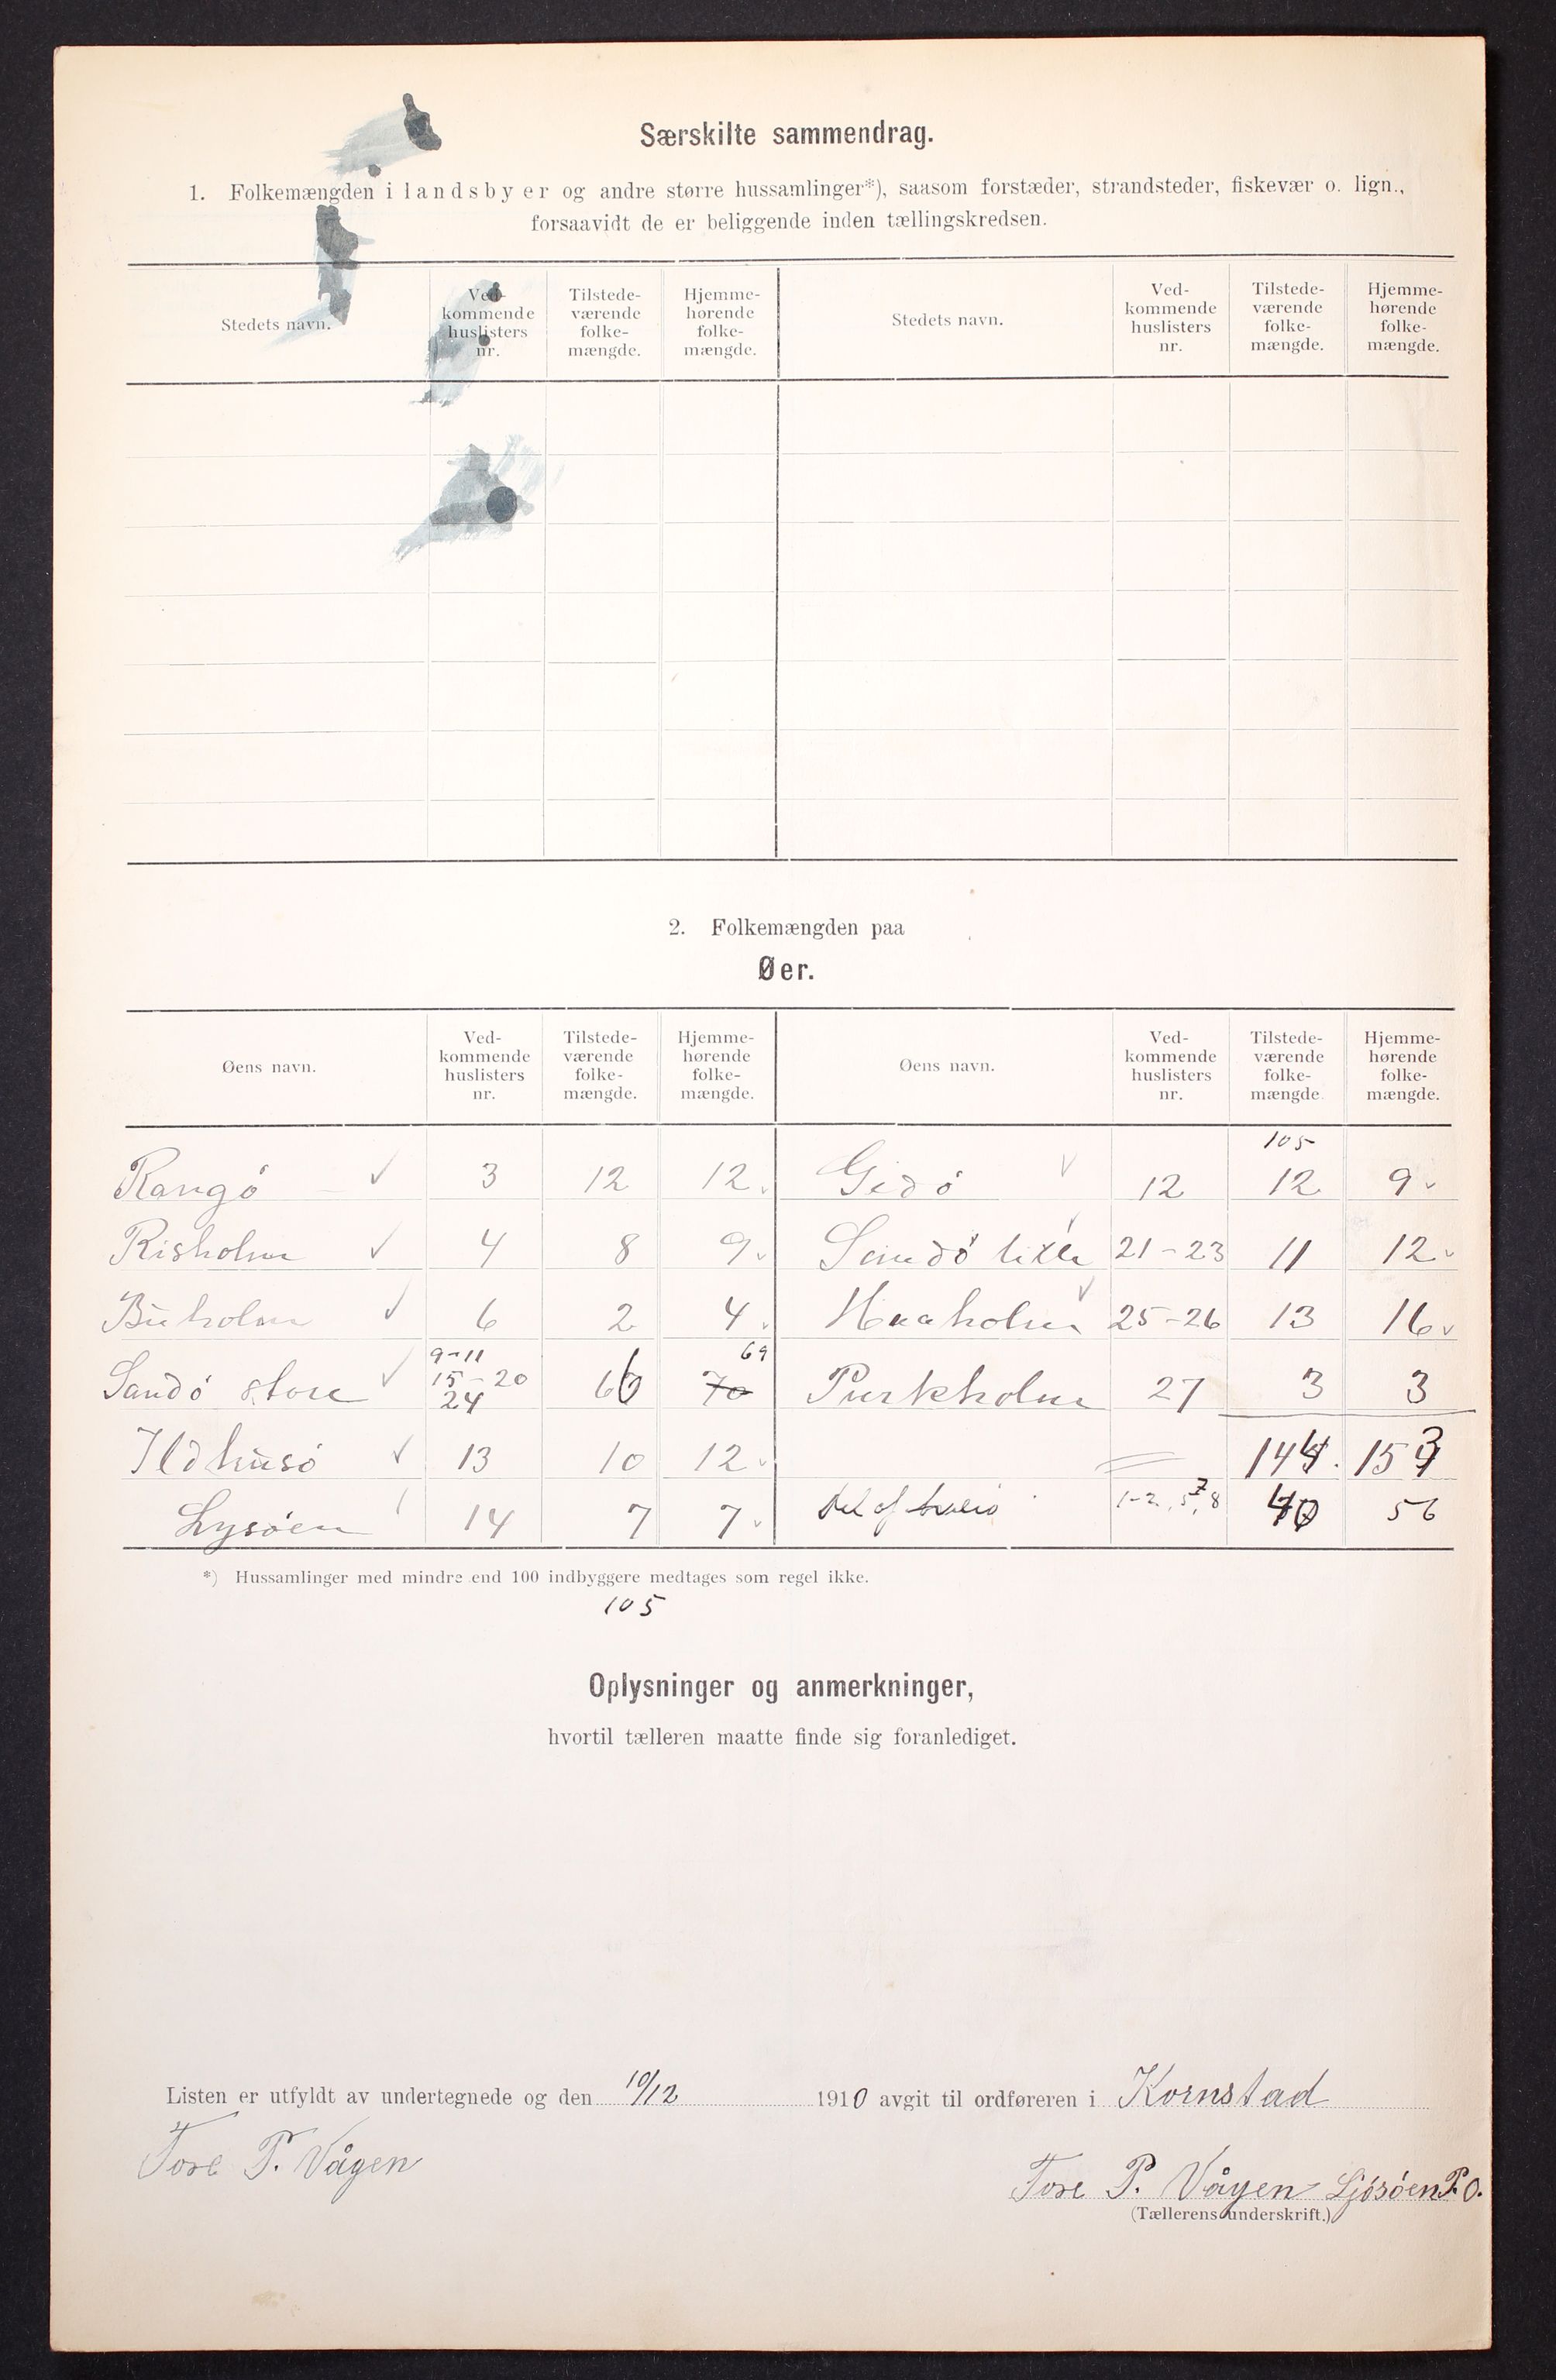 Særskilte sammendrag.
1. Folkemængden i landsbyer og andre større hussamlinger*), saasom forstæder, strandsteder, fiskevær o. lign.,
forsaavidt de er beliggende inden tællingskredsen.
Stedets navn. Ved-kommende huslisters nr. Tilstede-værende folke-mængde. Hjemme-hørende folke-mængde. Stedets navn. Ved-kommende huslisters nr. Tilstede-værende folke-mængde. Hjemme-hørende folke-mængde.
2. Folkemængden paa
Øer.
Øens navn. Ved-kommende huslisters nr. Tilstede-værende folke-mængde. Hjemme-hørende folke-mængde. Øens navn. Ved-kommende huslisters nr. Tilstede-værende folke-mængde. Hjemme-hørende folke-mængde.
105
Rangö 3 12 12 Gedö 12 12 9
Risholm 4 8 9 Sandö litle 21-23 11 12
Buholm 6 2 4 Haaholm 25-26 13 16
Sandö store 9-11 15-20 24 66 70 69 Purkholm 27 3 3
Ildhusö 13 10 12 144. 153
Lysöen 14 7 7 Del af 1-2, 5, 7, 8 40 56
*) Hussamlinger med mindre end 100 indbyggere medtages som regel ikke.
105
Oplysninger og anmerkninger,
hvortil tælleren maatte finde sig foranlediget.
Listen er utfyldt av undertegnede og den 10/12 1910 avgit til ordføreren i Kornstad
Tore P. Vågen
Tore P. Vågen Ljösöen P.O.
(Tællerens underskrift.)